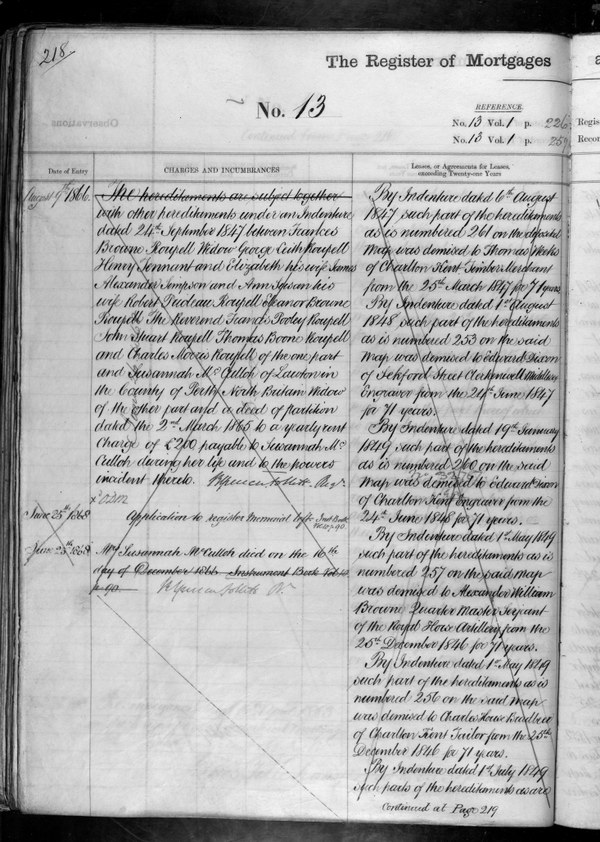 218
The Register of Mortgages
No. 13
REFERENCE.
No. 13 Vol. 1 p. 226
No. 13 Vol. 1 p. 259
Regis
Recor
Date of Entry
CHARGES AND INCUMBRANCES
Leases, or Agreements for Leases, exceeding Twenty-one Years
August 9th 1866.
The hereditaments are subject together
with other hereditaments under an Indenture
dated 24th September 1847 between Frances
Browne Roupell Widow George Keith Roupell
Henry Tennant and Elizabeth his wife James
Alexander Simpson and Ann his
wife Robert Prideau Roupell Eleanor Browne
Roupell The Reverend Francis Pooley Roupell
John Stuart Roupell Thomas Boone Roupell
and Charles Roupell of the one part
and Susannah Mc Culloh of Lawton in
the County of Perth North Britain Widow
of the other part and a deed of partition
dated the 2nd March 1865 to a yearly rent
Charge of £200 payable to Susannah Mc
Culloh during her life and to the powers
incident thereto.
June 25th 1868
Application to register Memorial left Inst. Book
June 25th 1868
Mrs Susannah Mc Culloh died on the 16th
day of December 1866 Instrument Book Vol
p 90
By Indenture dated 6th August
1847 such part of the hereditaments
as is numbered 261 on the deposited
Map was demised to Thomas
of Charlton Kent Timber Merchant
from the 25th March 1847 for 71 years.
By Indenture dated 1st August
1848 such part of the hereditaments
as is numbered 253 on the said
Map was demised to Edward Dixon
of Sekford Street Clerkenwell Middlesex
Engraver from the 24th June 1847
for 71 years.
By Indenture dated 19th January
1849 such part of the hereditaments
as is numbered 260 on the said
Map was demised to Edward Dixon
of Charlton Kent Engraver from the
24th June 1848 for 71 years.
By Indenture dated 1st May 1849
such part of the hereditaments as is
numbered 257 on the said Map
was demised to Alexander William
Browne Quarter Master Serjeant
of the Royal Horse Artillery from the
25th December 1846 for 71 years.
By Indenture dated 1st May 1849
such part of the hereditaments as is
numbered 256 on the said Map
was demised to Charles House
of Charlton Kent Tailor from the 25th
December 1846 for 71 years.
By Indenture dated 1st July 1849
such parts of the hereditaments as are
Continued at Page 219